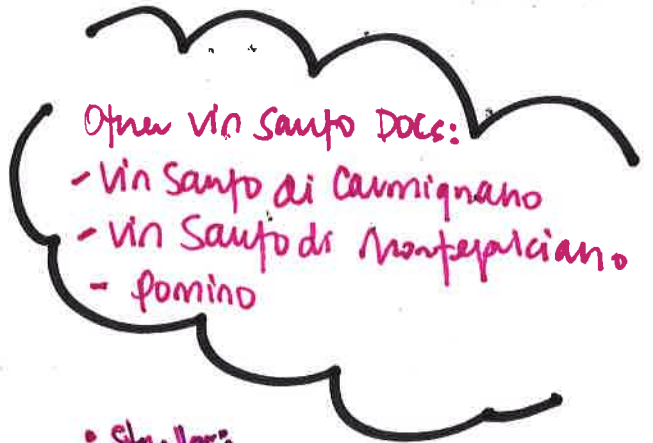 Other Vin Santo DOCs:
- Vin Santo di Carmignano
- Vin Santo di Montepulciano
- Pomino